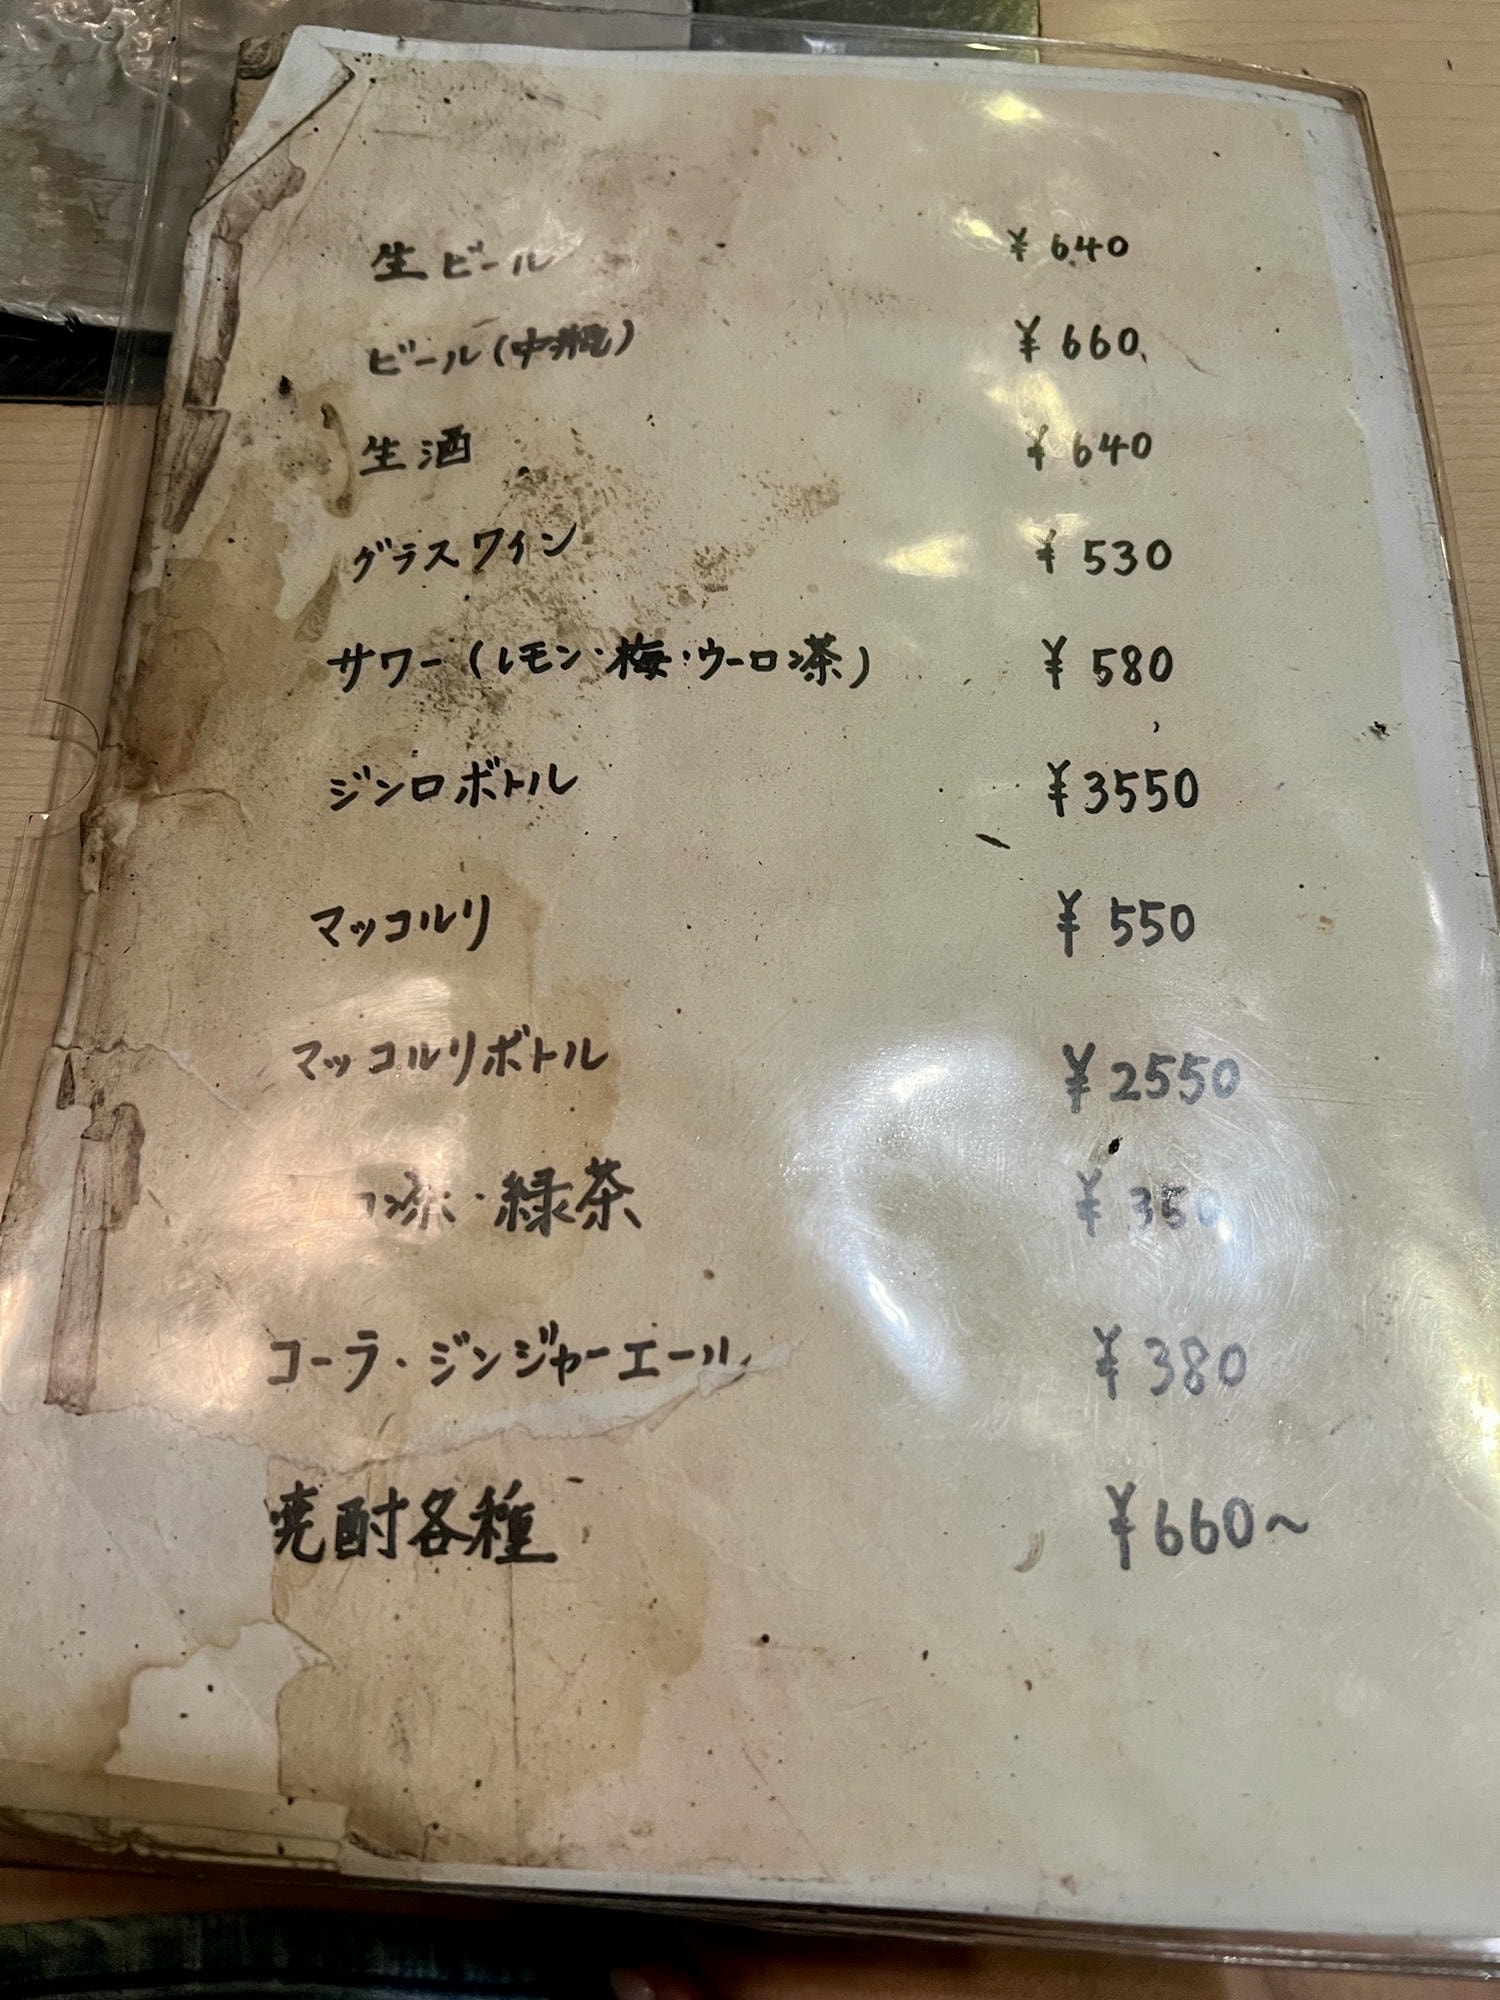 生ビール ¥640
ビール(中瓶) ¥660
生酒 ¥640
グラスワイン ¥530
サワー(レモン・梅・ウーロン茶) ¥580
ジンロボトル ¥3550
マッコルリ ¥550
マッコルリボトル ¥2550
ロン茶・緑茶 ¥350
コーラ・ジンジャーエール ¥380
焼酎各種 ¥660~